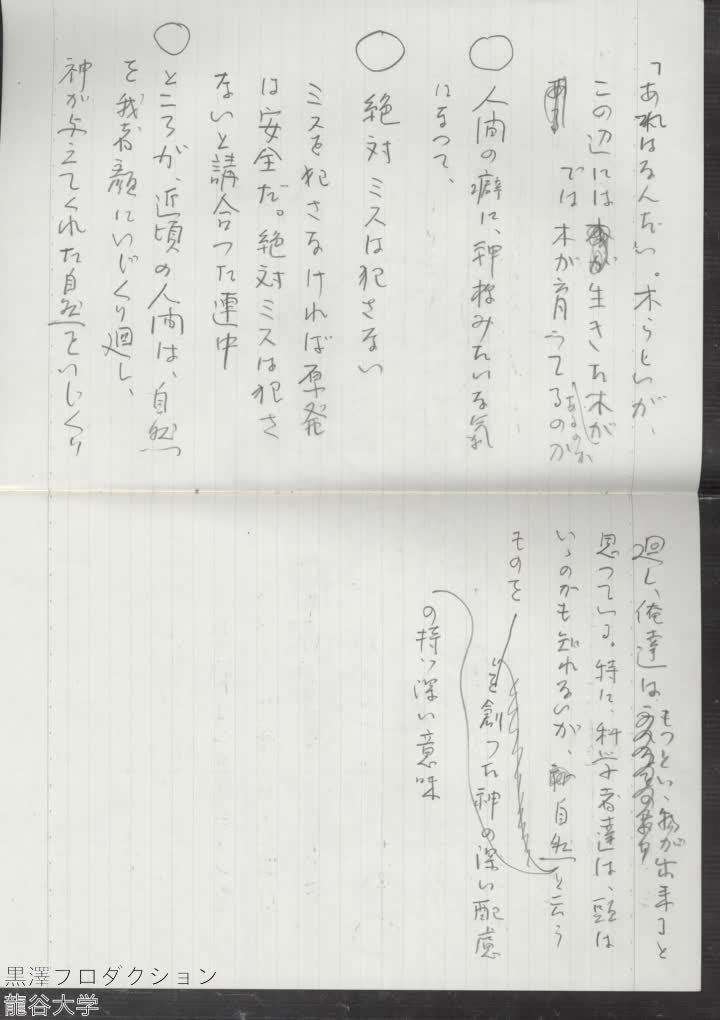 「あれはなんだい。木らしいが、
この辺には生きた木が
あるのか
では木が育ってるのか
○ 人間の癖に、神様みたいな気
になって、
○ 絶対ミスは犯さない
ミスを犯さなければ原発
は安全だ。絶対ミスは犯さ
ないと請合った連中
○ ところが、近頃の人間は、自然
を我者顔にいじくり廻し、
神が与えてくれた自然をいじくり
廻し、俺達は
もっといゝ物が出来ると
思っている。特に、科学者達は、頭は
いゝのかも知れないが、自然と云う
ものを
を創った神の深い配慮
の持つ深い意味
黒澤プロダクション
龍谷大学